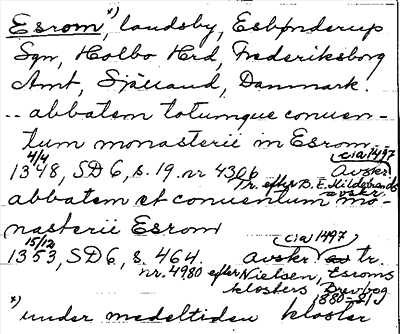 Esrom*), landsby, Esbønderup
Sgn, Holbo Hrd, Frederiksborg
Amt, Sjælland, Danmark.
-- abbatem totumque conuen-
tum monasterii in Esrom
4/4 1348, SD 6, s. 19. nr 4306 (cia 1497 avskr.)
Tr. efter B. E. Hildebrands avskr.
abbatem et conuentum mo-
nasterii Esrom
15/12 1353, SD 6, s. 464. (cia 1497) avskr. tr.
nr. 4980 efter Nielsen, Esroms
klosters Brevbog
1880-81)
*) under medeltiden kloster